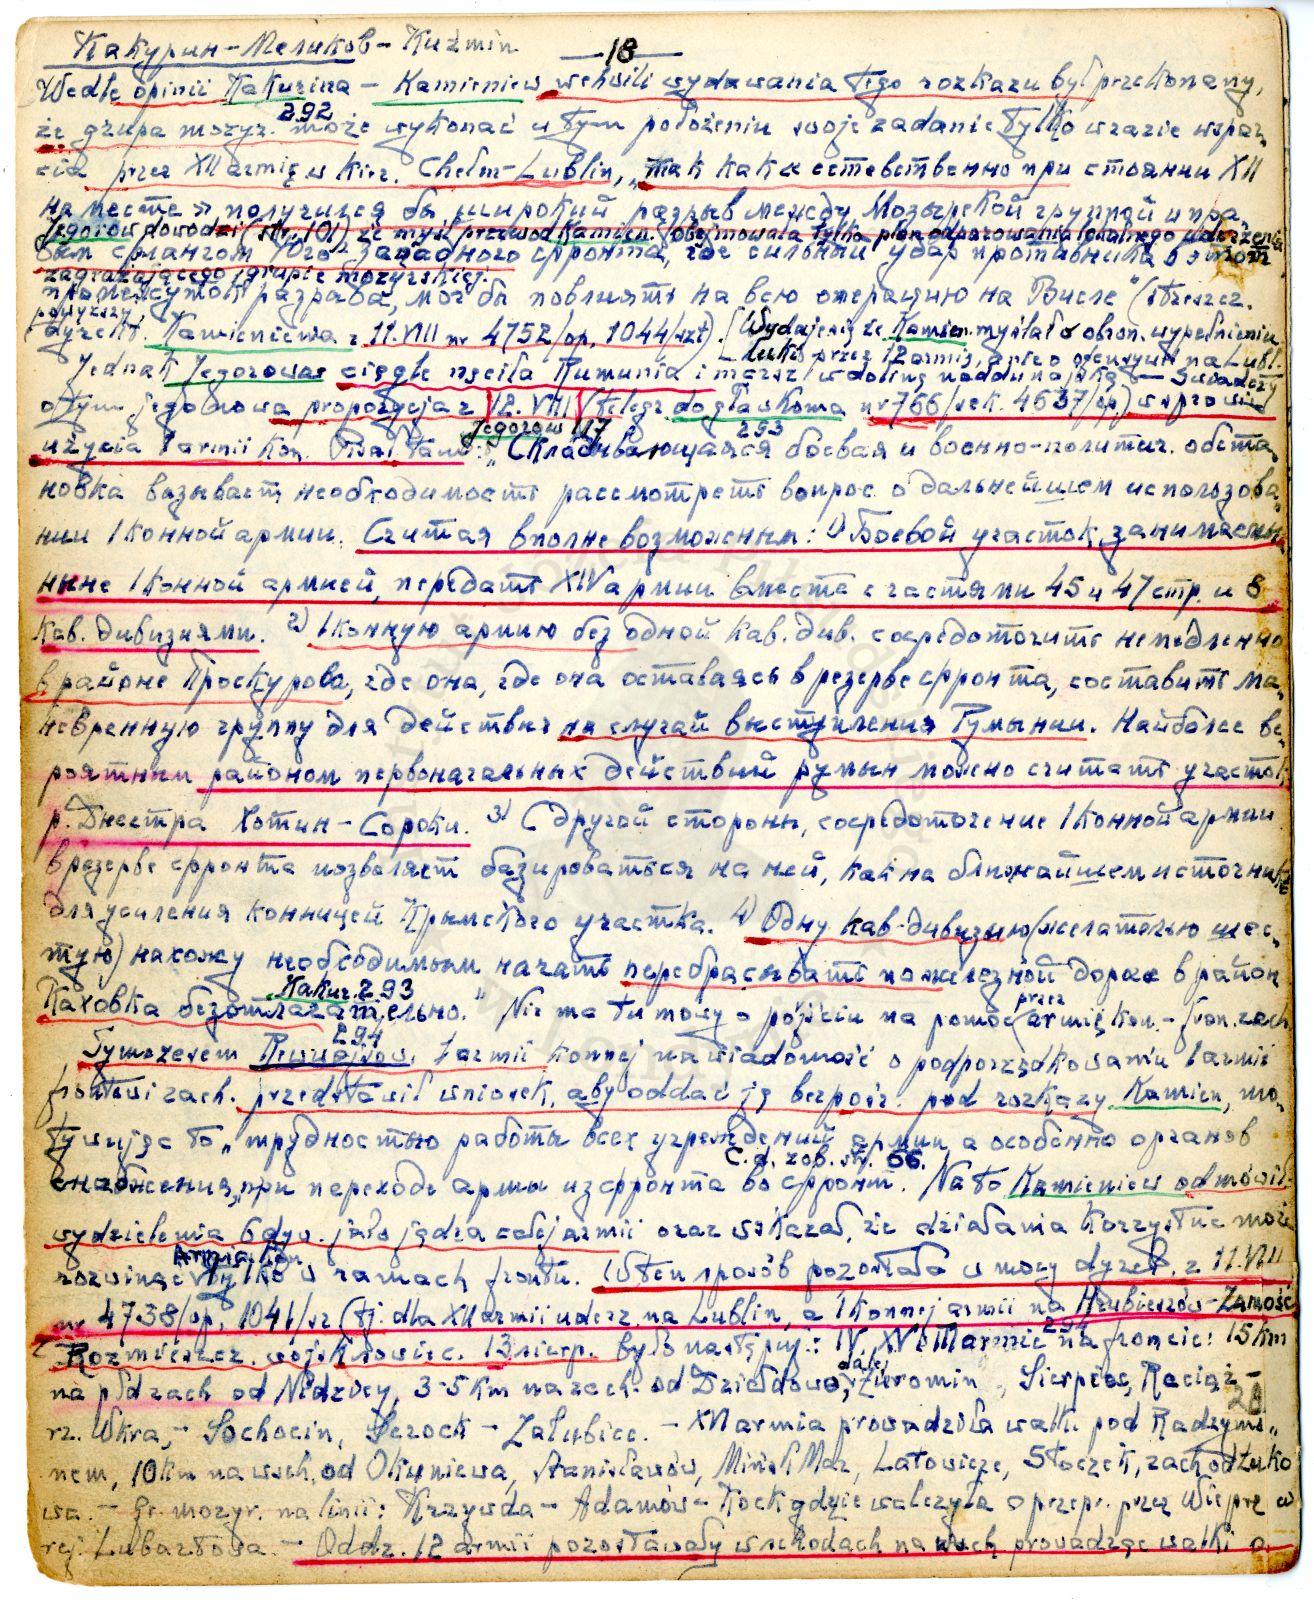 Какурин-Меликов-Kuźmin — 18 —
Wedle opinii Kakurina – Kamieniew w chwili wydawania tego rozkazu był przekonany,
292
że grupa mozyr. może wykonać w tym położeniu swoje zadanie tylko w razie wspar-
cia przez XII armię w kier. Chełm-Lublin, „так как « естественно при стоянии XII
на месте » получился бы широкий разрыв между Мозырской группой и пра-
Jegorow dowodzi (str. 101) że myśl przewod. Kamien. obejmowała tylko plan odparowania lokalnego uderzenia
вым флангом Юго-западного фронта, где сильный удар противника в этот
zagrażającego grupie mozyrskiej.
промежуток разрыва, мог бы повлиять на всю операцию на Висле" (streszcz.
powyższy
dyrekt. Kamieniewa z 11.VIII nr 4752/op, 1044/szt). [Wydaje się że Kamien. myślał o obron. wypełnieniu
luki przez 12 armię, a nie o ofensywie na Lubl.
Jednak Jegorowa ciągle nęciła Rumunia i marsz w dolinę naddunajską – Świadczy
o tym jego nowa propozycja z 12.VIII (telegr. do gławkoma nr 766/sek. 4637/op) w sprawie
Jegorow 117 293
użycia 1 armii kon. Pisał tam: „Складывающаяся боевая и военно-политич. обста-
новка вызывает необходимость рассмотреть вопрос о дальнейшем использова-
нии 1 Конной армии. Считая вполне возможным: 1) Боевой участок, занимаемый
ныне 1 Конной армией, передать XIV армии вместе с частями 45 и 47 стр. и 8
кав. дивизиями. 2) 1 конную армию без одной кав. див. сосредоточить немедленно
в районе Проскурова, где она, где она оставаясь в резерве фронта, составит ма-
невренную группу для действия на случай выступления Румынии. Наиболее ве-
роятным районом первоначальных действий румын можно считать участок
р. Днестра Хотин-Сороки. 3) С другой стороны, сосредоточение 1 Конной армии
в резерве фронта позволяет базироваться на ней, как на ближайшем источнике
для усиления конницей Крымского участка. 4) Одну кав. дивизию (желательно шес-
тую) нахожу необходимым начать перебрасывать по железной дороге в район
Kakur. 293
Каховка безотлагательно." Nie ma tu mowy o pójściu na pomoc przez armię kon. – fron. zach.
294
Tymczasem Rewwojsow. 1 armii konnej na wiadomość o podporządkowaniu 1 armii
frontowi zach. przedstawił wniosek, aby oddać ją bezpośr. pod rozkazy Kamien, mo-
tywując to „трудностью работы всех учреждений армии, а особенно органов
C.d. zob. str. 66.
снабжения, при переходе армии из фронта во фронт. Na to Kamieniew odmówił
wydzielenia 6 dyw. jako jądra całej armii oraz wskazał, że działania korzystne może
Armia Kon
rozwinąć tylko w ramach frontu. W ten sposób pozostała w mocy dyrek. z 11.VIII
nr 4738/op, 1041/sz (tj. dla XII armii uderz. na Lublin, a 1 Konnej armii na Hrubieszów-Zamość
294
Rozmieszcz. wojsk sowiec. 13 sierp. było następuj.: IV, XV i III armie na froncie: 15 km
na płd zach od Nidzicy, 3-5 km na zach. od Działdowa, dalej Żuromin, Sierpiec, Raciąż –
20
rz. Wkra, – Sochocin, Serock – Załubice. – XVI armia prowadziła walki pod Radzymi-
nem, 10 km na wsch. od Okuniewa, Stanisławów, Mińsk Maz, Latowicze, Stoczek, zachod Łuko
wa. – Gr. mozyr. na linii: Krzywda – Adamów – Kock gdzie walczyła o przepr. przez Wieprz w
rej. Lubartowa. – Oddz. 12 armii pozostawały w schodach na wsch prowadząc walki o